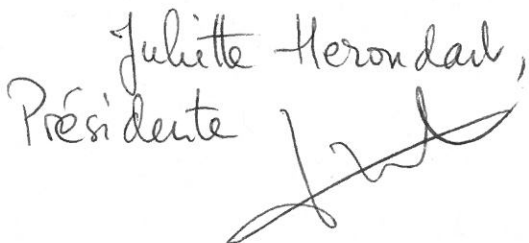 Juliette Herondart,
Présidente